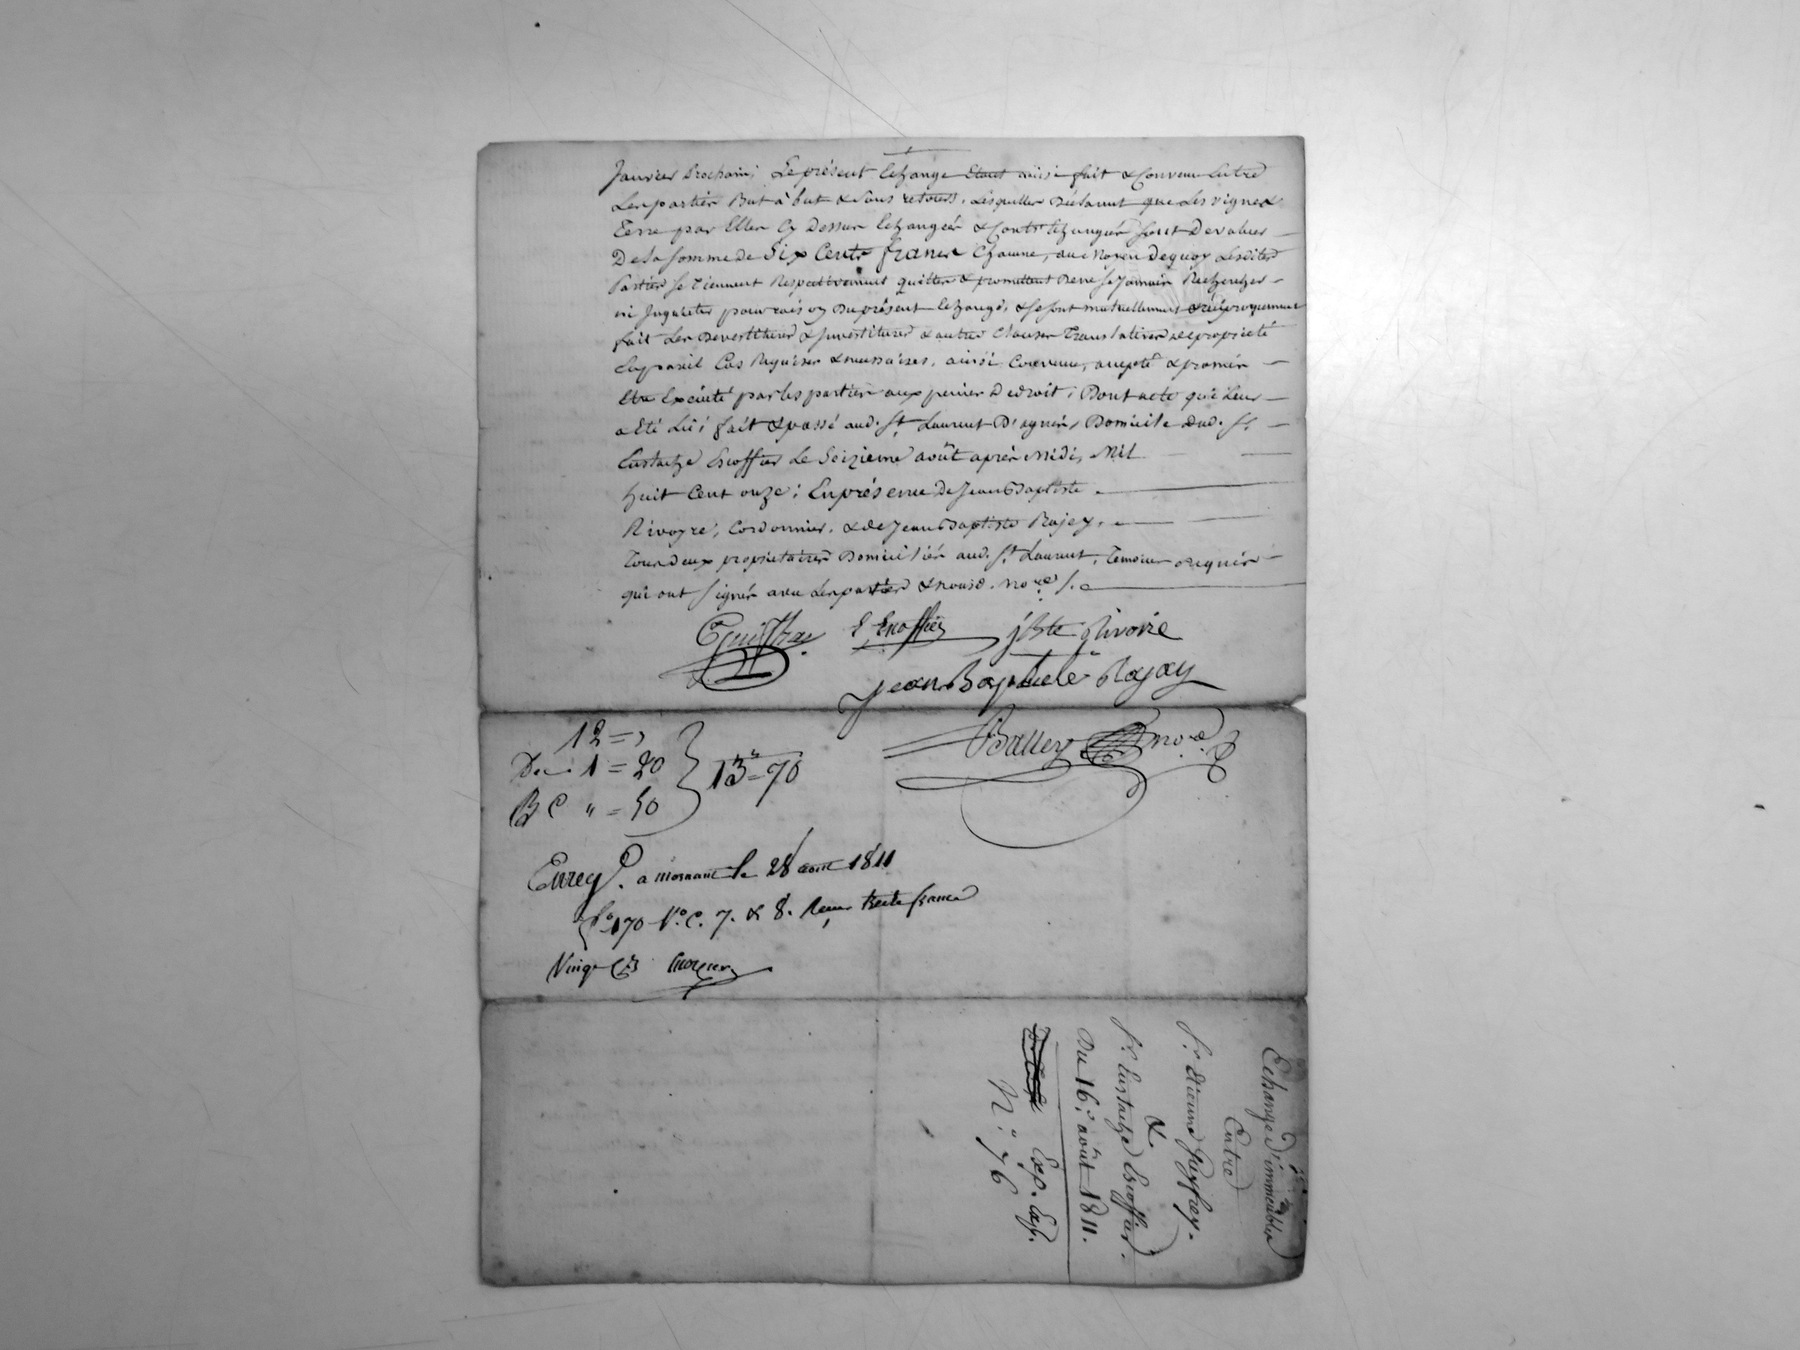 Janvier Prochain; Le présent Echange Etant ainsi fait & Convenu Entre
Les parties But à but & sans retours. Lesquelles Déclarent que les vigne &
Terre par Elles Cy Dessus Echangées & Contr'Echangées sont De valeur
De la somme de Six Cents francs Chacune, au Moyen dequoy Lesdites
Parties se Tiennent Respectivement quittes & promettent De ne se Jamais Rechercher
ni Inquieter pour raison Du présent Echange, & se sont mutuellement & réciproquement
fait Les Devestitures & Investitures & autres Clauses Translatives de propriété
En pareil Cas Requises & nécessaires, ainsi Convenu, accepté & promis
Etre Exécuté par les parties aux peines De droit; Dont acte qui Leur
a été Lu; fait & passé aud. St Laurent D'agnis, Domicile dud. Sr
Eustache Escoffier Le Seizieme août après Midi, Mil
huit Cent onze; En présence De Jean Baptiste
Rivoyre, Cordonnier, & de Jean Baptiste Rajey,
Tous deux propriétaires Domiciliés aud. St Laurent, Temoins requis
qui ont signés avec Les parties & nousd. nore s.
E Escoffier jBte Rivoire
Jean Baptiste Rajay
Balley nore
12 = "
Dec. 1 = 20
BC " = 50
13 = 70
Enregé. a mornant le 28 aout 1811
fo 170 Vo C. 7. & 8. Reçu treize francs
Vingt Cs
Echange d'immeubles
Entre
Sr Etienne Guyffrey.
&
Sr Eustache Escoffier.
Du 16e. août 1811.
Exp. Exp.
N.o 76